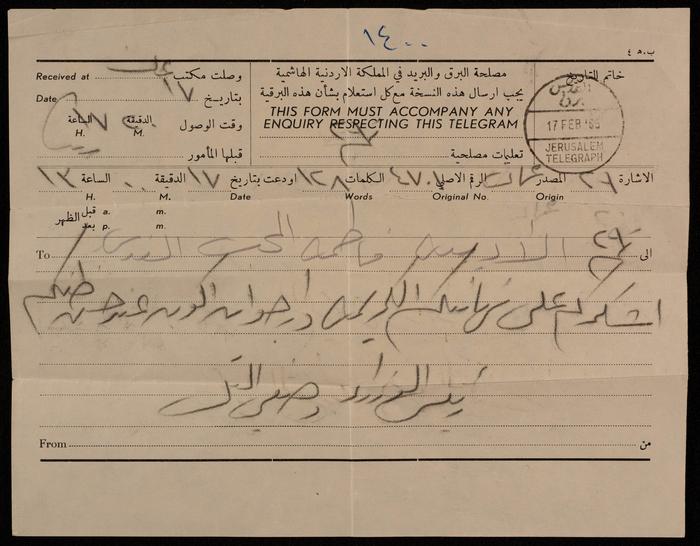 ١٤٠٠
ب.ه ٤
Received at وصلت مكتب
Date بتاريخ ١٧
الساعة الدقيقة وقت الوصول
H. M.
قبلها المأمور
مصلحة البرق والبريد في المملكة الاردنية الهاشمية
يجب ارسال هذه النسخة مع كل استعلام بشأن هذه البرقية
THIS FORM MUST ACCOMPANY ANY
ENQUIRY RESPECTING THIS TELEGRAM
تعليمات مصلحية
خاتم التاريخ
القدس
برق
17 FEB '65
JERUSALEM
TELEGRAPH
الاشارة ٢٦ المصدر عمان الرقم الاصلي ٤٧٠١ الكلمات ١٢٨ اودعت بتاريخ ١٧ الدقيقة ٠٠ الساعة ١٣
Origin Original No. Words Date M. H.
قبل a. m.
الظهر
بعد p. m.
To الى الأديبة فاطمة المحب القدس
اشكركم على تهانيكم الكريمة وارجو ان اكون عند حسن ظنكم
رئيس الوزراء وصفي التل
From من